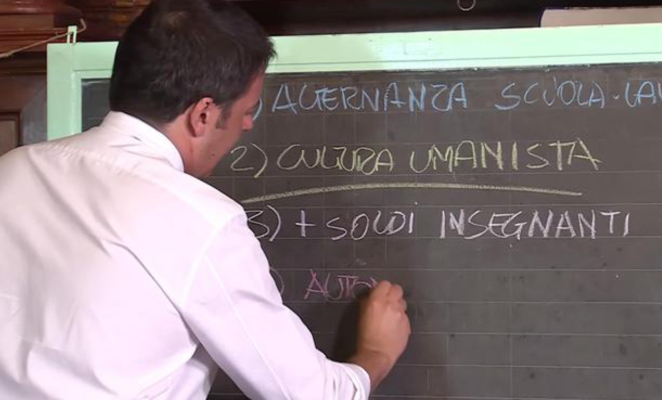 ) ALTERNANZA SCUOLA-LAV
2) CULTURA UMANISTA
3) + SOLDI INSEGNANTI
) AUTON